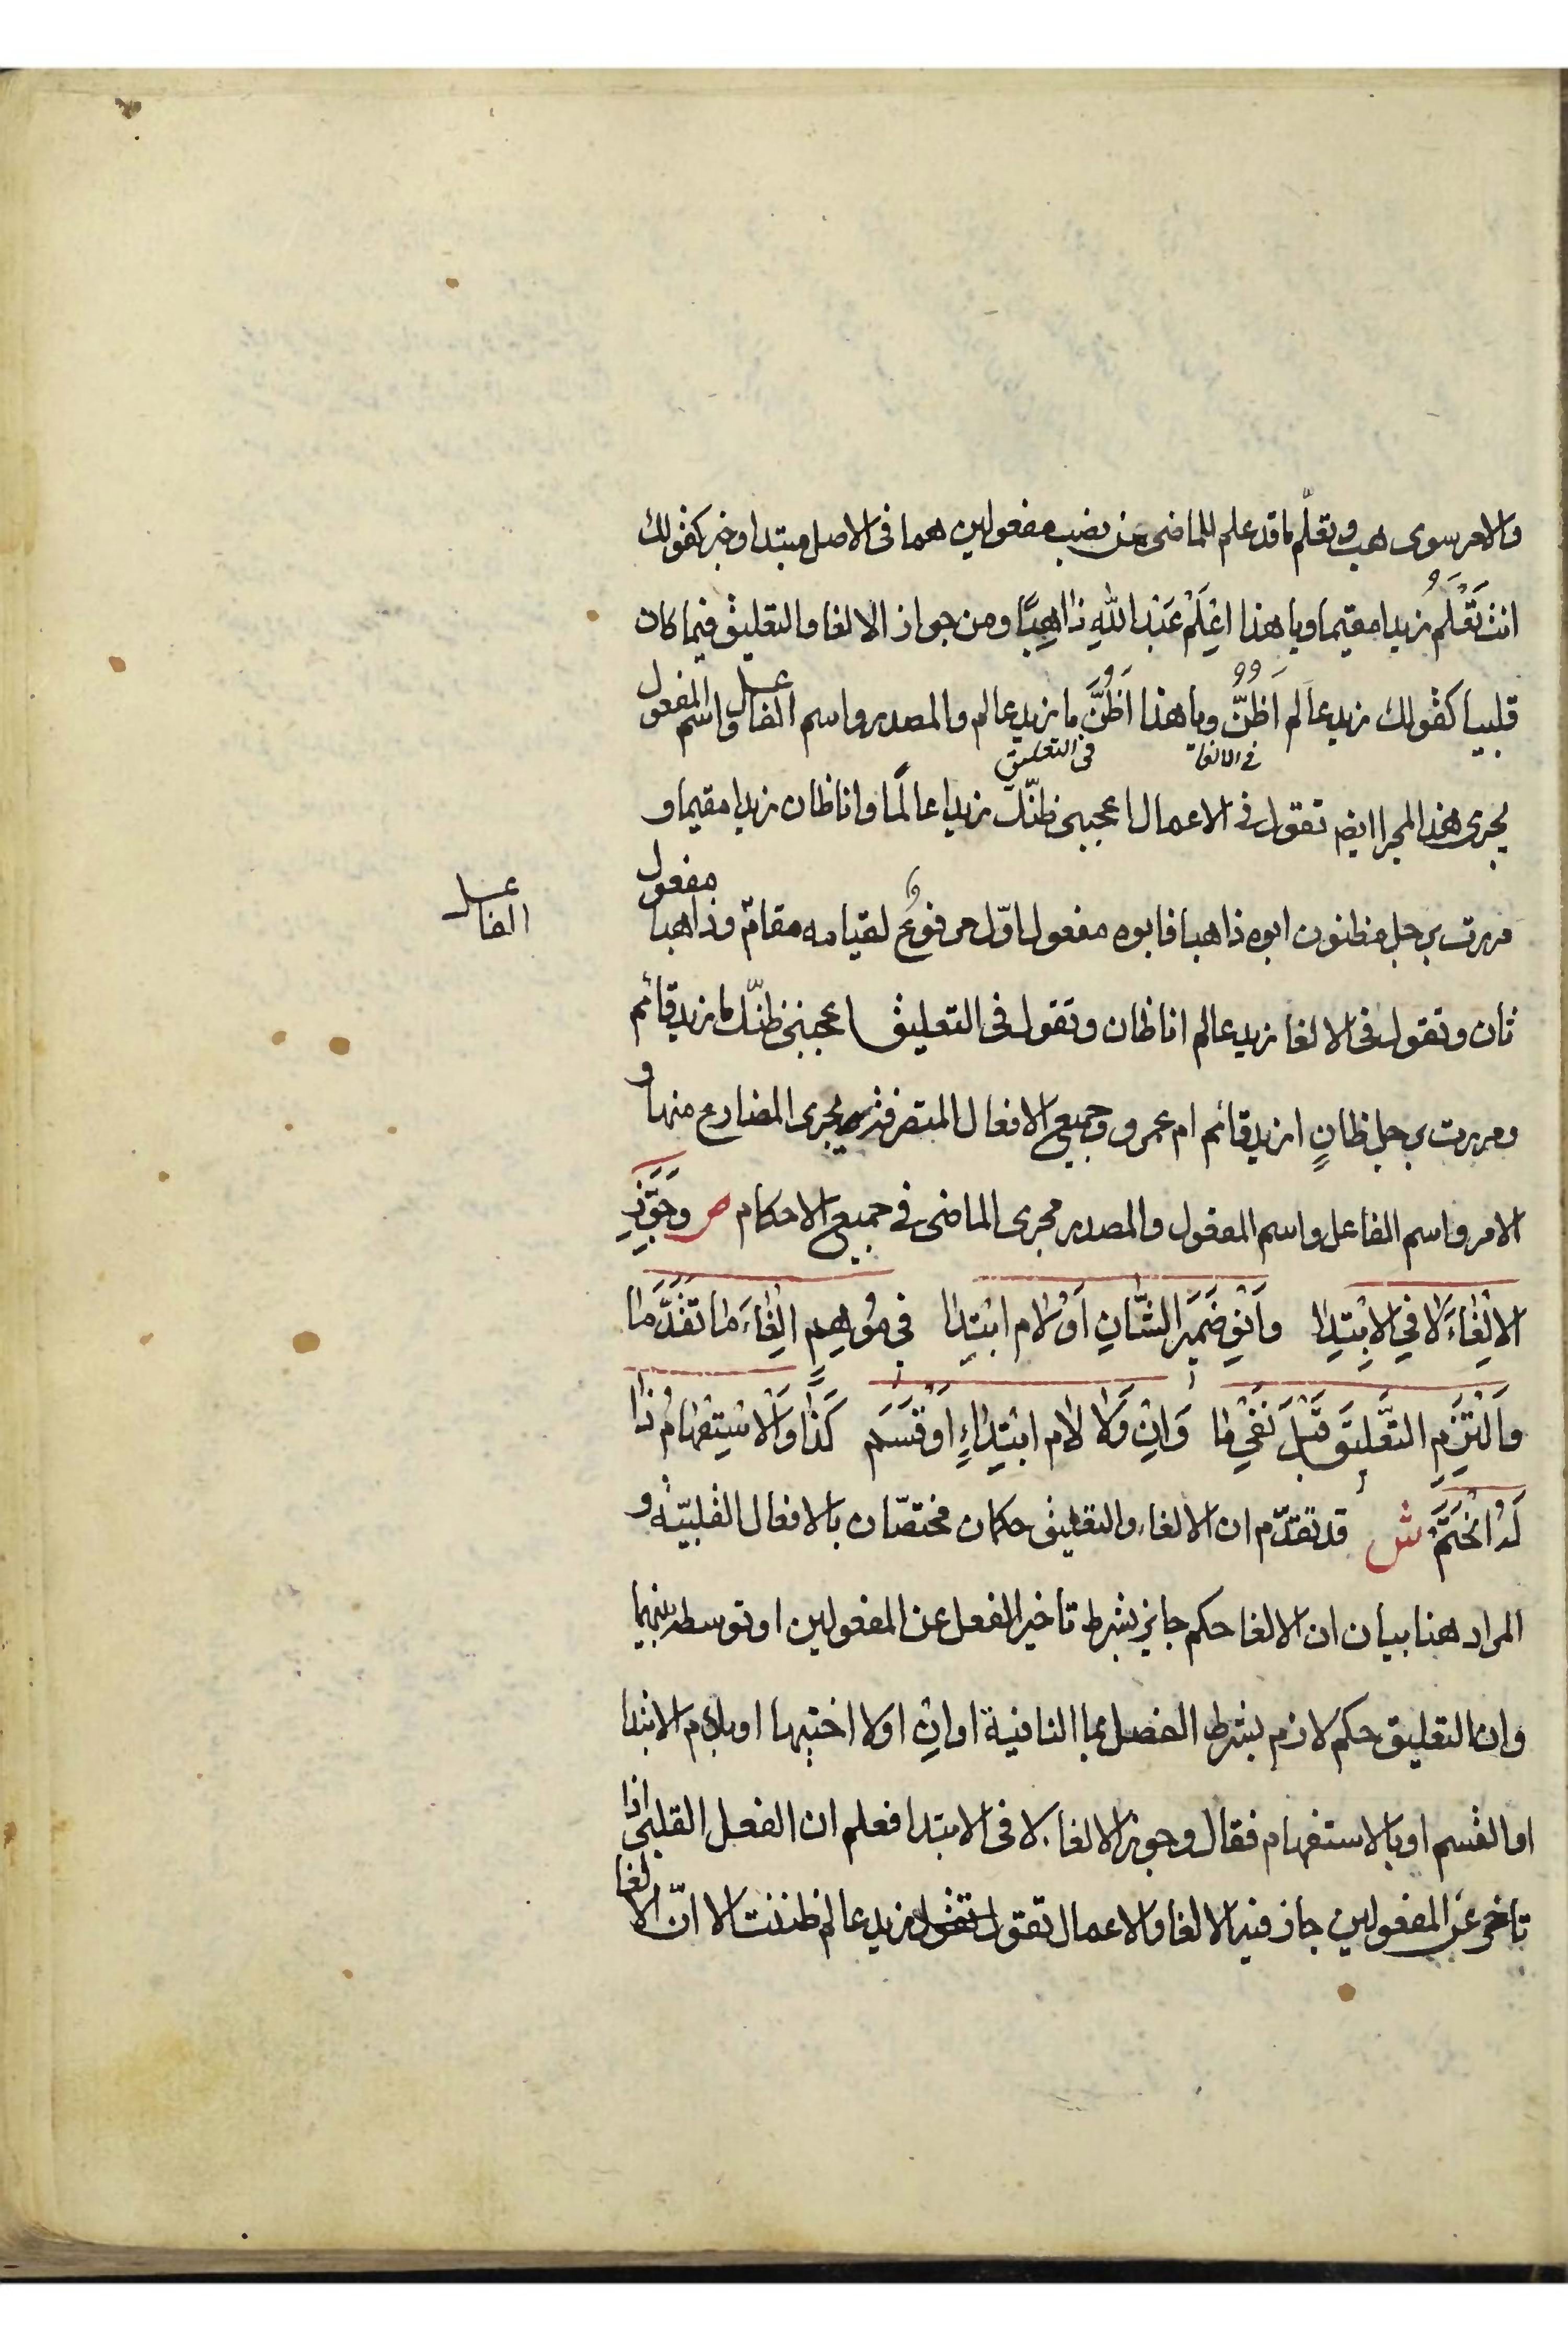 والامر سوى هب وتعلّم ما قد علم للماضى من نصب مفعولين هما فى الاصل مبتدا وخبر كقولك
انت تَعْلَمُ زيدا مقيما ويا هذا اعْلَمْ عَبْدَ اللّهِ ذاهِبًا ومن جواز الالغا والتعليق فيما كان
قلبيا كقولك زيد عالم اَظُنُّ ويا هذا اَظُنَّ ما زيد عالم والمصدر واسم الفاعل واسم المفعول
فى الالغاء
فى التعليق
يجرى هذا المجرا ايضم تقول فى الاعمال اعجبنى ظنّك زيدا عالمًا وانا ظان زيدا مقيما و
مررت برجل مظنون ابوه ذاهبا فابوه مفعول اوّل مرفوعٌ لقيامه مقام وذاهبا مفعول
الفاعل
ثان وتقول فى الالغا زيد عالم انا ظان وتقول فى التعليق اعجبنى ظنّك ما زيد قائم
ومررت برجل ظانٍ ازيد قائم ام عمرو وجميع الافعال المتصرفة يجرى المضارع منها و
الامر واسم الفاعل واسم المفعول والمصدر مجرى الماضى فى جميع الاحكام ص وَجَوِّزِ
الالْغاءَ لا فى الابْتِدا وَانْوِ ضَمِيرَ الشَّانِ اَوْ لام ابْتِدا فى مُوهِمٍ اِلْغاءَ ما تَقَدَّمَا
وَالْتَزِمِ التَّعْلِيقَ قَبْلَ نَفْىِ ما وَاِنْ وَلا لام ابْتِداءٍ اَوْ قَسَم كَذا وَالاسْتِفْهامُ ذا
لَهُ انْحَتَمْ ش قد تقدّم ان الالغاء والتعليق حكمان مختصّان بالافعال القلبيّة و
المراد هنا بيان ان الالغا حكم جايز بشرط تاخير الفعل عن المفعولين او توسطه بينهما
وان التعليق حكم لازم بشرط الفصل بما النافية او اِنْ اولا اختيها او بلام الابتدا
او القسم او بالاستفهام فقال وجوز الالغاء لا فى الابتدا فعلم ان الفعل القلبى اذا
تاخر عن المفعولين جاز فيه الالغا والاعمال تقول تقول زيد عالم ظننت الا انّ الالغا